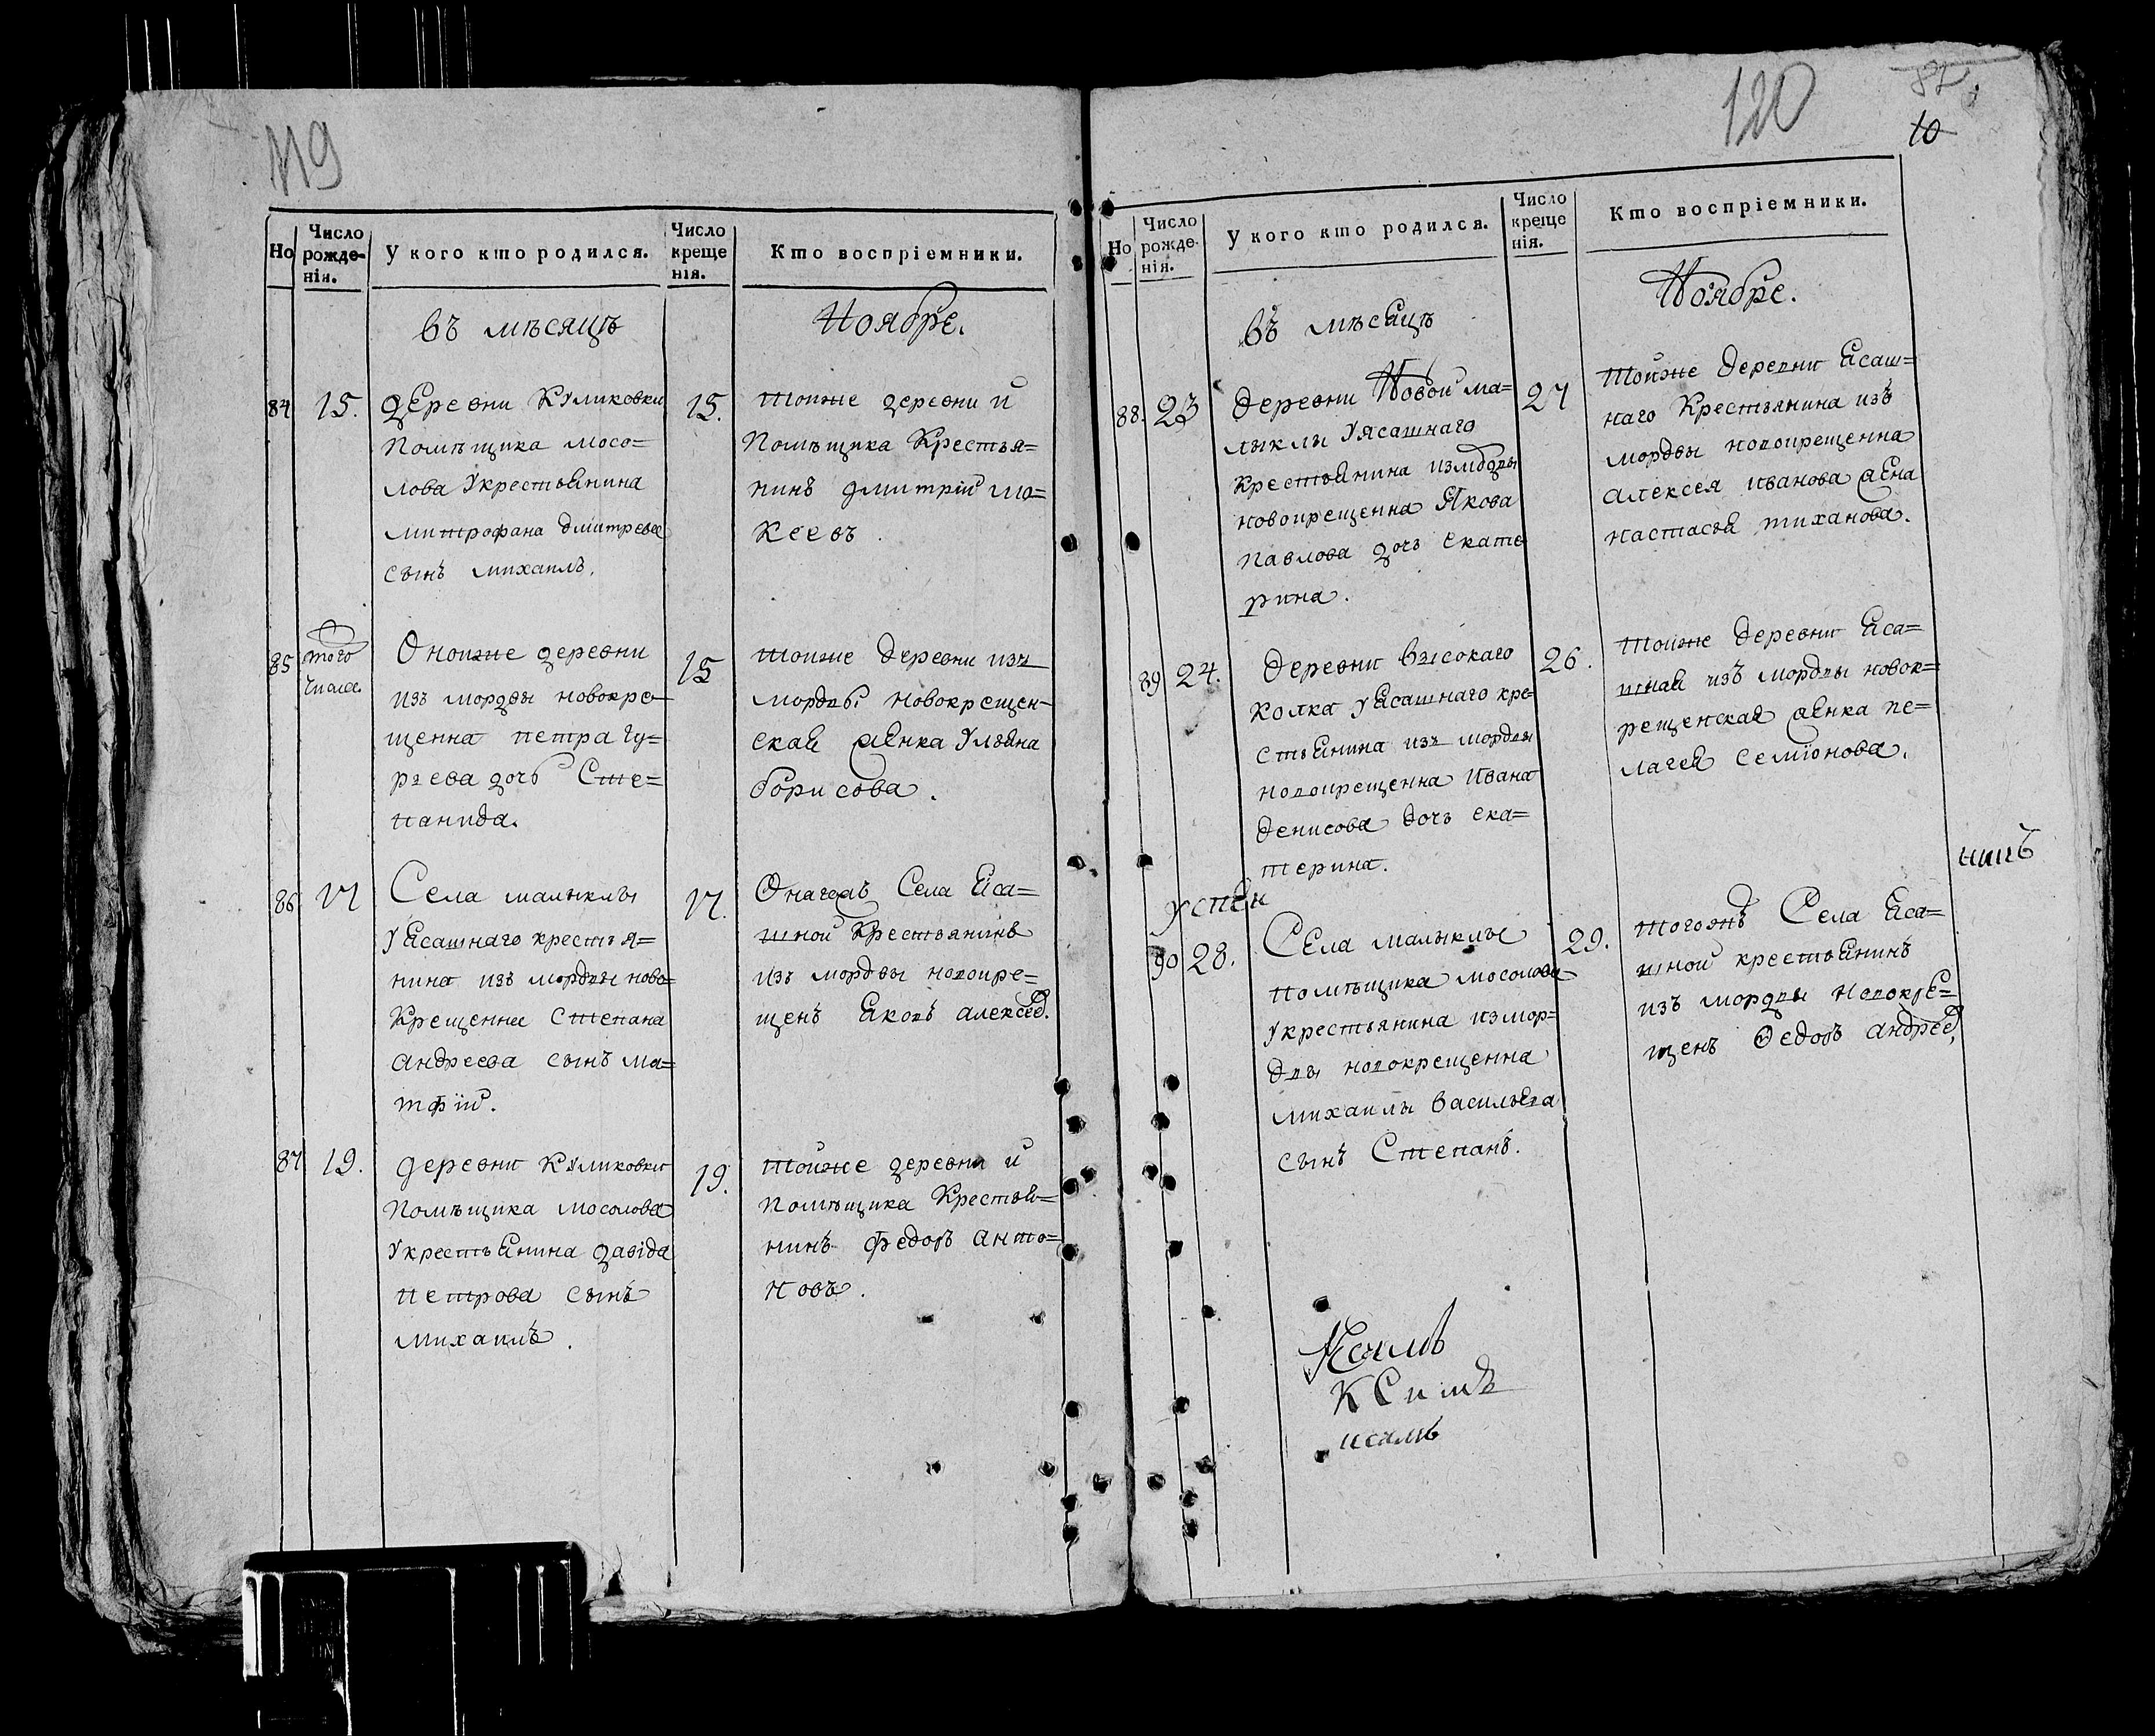 119
Но
Число рожденія.
У кого кто родился.
Число крещенія.
Кто воспріемники.
въ мѣсяцѣ
Ноябре.
84
15.
деревни Куликовки
Помѣщика Мосо=
лова Укрестьянина
митрофана дмитрева
сынъ михаилъ.
15.
тойже деревни и
Помѣщика Крестья=
нинъ дмитрiй мо=
кеевъ.
85
того
числа.
Онойже деревни
изъ мордвы новокре=
щенна петра гу=
рьева дочь Сте=
панида.
15
тойже деревни изъ
мордвы новокрещен=
ская женка Ульяна
борисова.
86
17
Села малыклы
Уясашнаго крестья=
нина изъ мордвы ново=
Крещенна Степана
андреева сынъ ма=
тфiй.
17.
Села Яса=
шной Крестьянинъ
изъ мордвы новокре=
щенъ Яковъ алексѣев.
87
19.
деревни Куликовки
Помѣщика Мосолова
Укрестьянина давiда
петрова сынъ
михаилъ.
19.
тойже деревни и
Помѣщика Крестья=
нинъ федоръ анто=
новъ.
120
10
Но
Число рожденія.
У кого кто родился.
Число крещенія.
Кто воспріемники.
въ мѣсяцѣ
Ноябре.
88.
23
деревни Новой ма=
лыклы Уясашнаго
Крестьянина измордвы
новокрещенна Якова
павлова дочь екате
рина.
27
тойже деревни Ясаш=
наго Крестьянина изъ
мордвы новокрещенна
алексея иванова жена
настасья тиханова.
89
24.
деревни высокаго
колка уясашнаго кре=
стьянина изъ мордвы
новокрещенна ивана
денисова дочь ека=
терина.
26.
тойже деревни Яса=
шная изъ мордвы новок=
рещенская женка пе=
лагея семiонова.
90
28.
Села малыклы
помѣщика мосолова
укрестьянина измор=
двы новокрещенна
михаилы васильева
сынъ Степанъ.
29.
тогожъ Села Яса=
шной крестьянинъ
изъ мордвы новокре=
щенъ Федоръ андреев,
успен
никъ